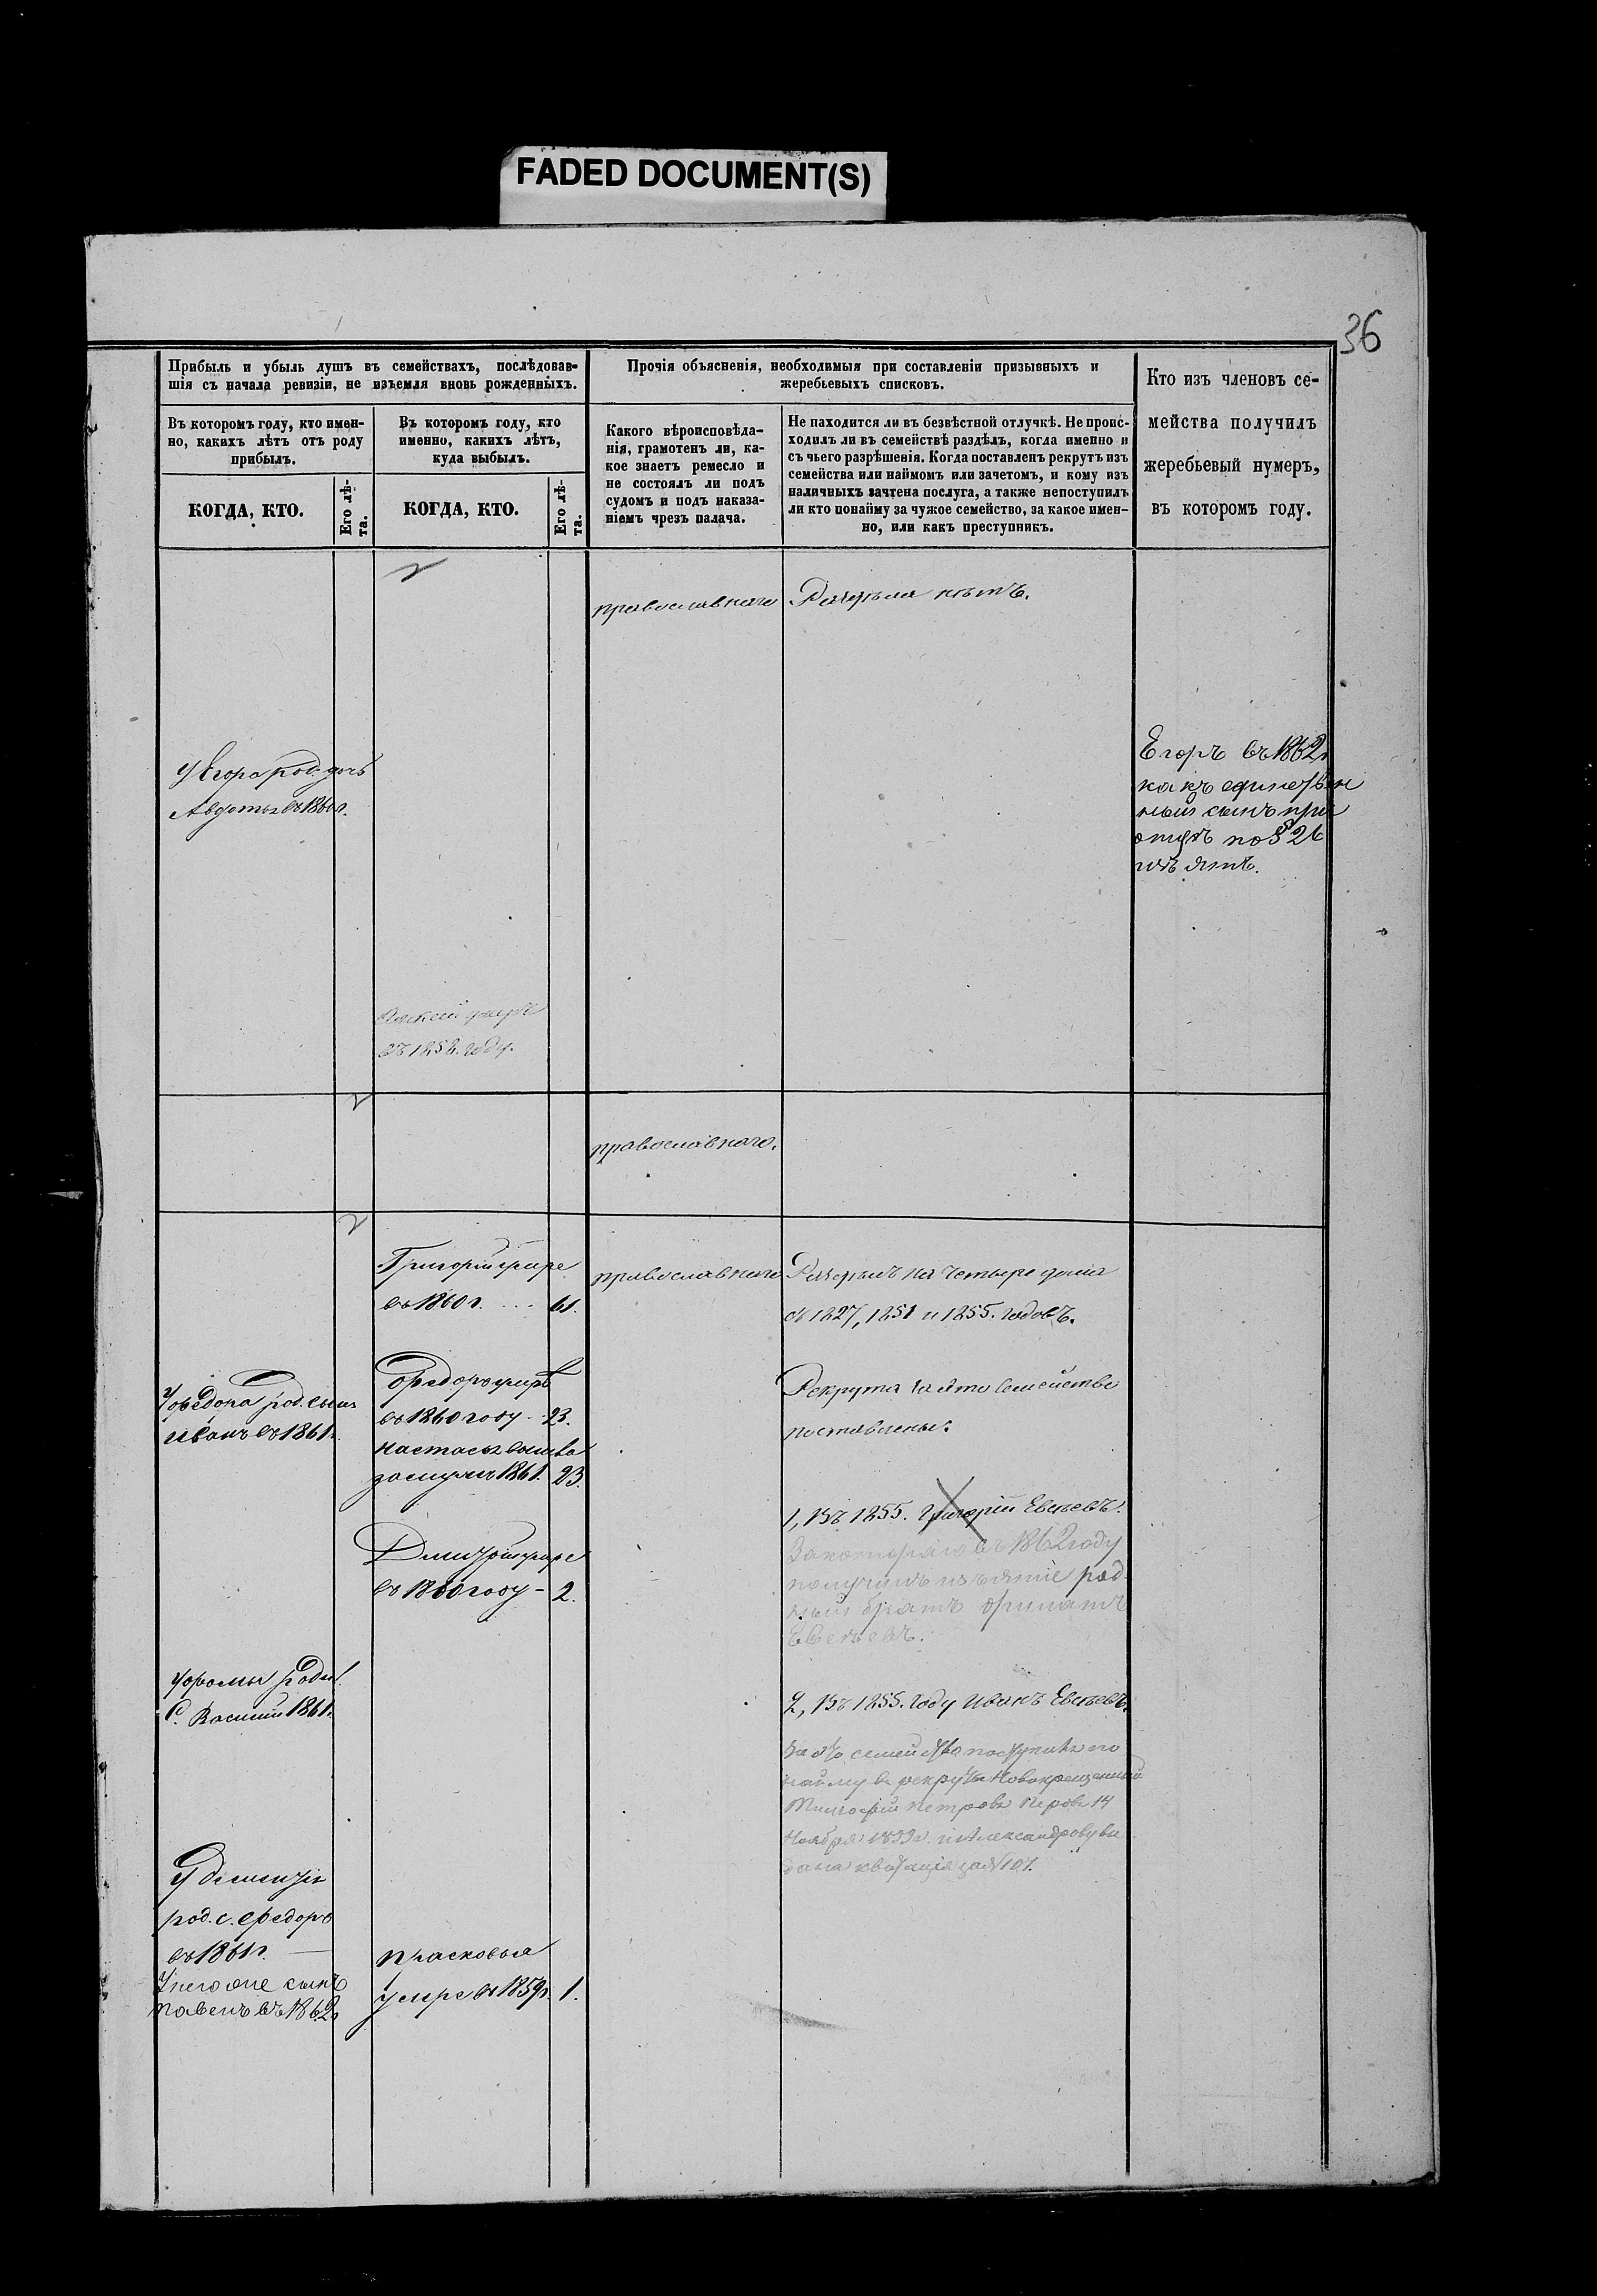 FADED DOCUMENT(S)
36
Прибыль и убыль душъ въ семействахъ, послѣдовав-
шія съ начала ревизіи, не изъемля вновь рожденныхъ.
Прочія объясненія, необходимыя при составленіи призывныхъ и
жеребьевыхъ списковъ.
Кто изъ членовъ се-
мейства получилъ
жеребьевый нумеръ,
въ которомъ году.
Въ которомъ году, кто имен-
но, какихъ лѣтъ отъ роду
прибылъ.
Въ которомъ году, кто
именно, какихъ лѣтъ,
куда выбылъ.
Какого вѣроисповѣда-
нія, грамотенъ ли, ка-
кое знаетъ ремесло и
не состоялъ ли подъ
судомъ и подъ наказа-
ніемъ чрезъ палача.
Не находится ли въ безвѣстной отлучкѣ. Не проис-
ходилъ ли въ семействѣ раздѣлъ, когда именно и
съ чьего разрѣшенія. Когда поставленъ рекрутъ изъ
семейства или наймомъ или зачетомъ, и кому изъ
наличныхъ зачтена послуга, а также непоступилъ
ли кто понайму за чужое семейство, за какое имен-
но, или какъ преступникъ.
КОГДА, КТО.
Его лѣ-
та.
КОГДА, КТО.
Его лѣ-
та.
православнаго
Раздѣла нѣтъ.
У Егора род. дочь
Авдотья въ 1860 г.
Егоръ въ 1862 г
какъ единствен
ный сынъ при
отцѣ по § 26
изъятъ.
въ 1858. году.
православнаго.
Григорій умре
въ 1860 г. ... 61.
православнаго
Раздѣлъ на четыре дома
съ 1827, 1851 и 1855. годовъ.
У Ѳедора род. сынъ
Иванъ въ 1861 г.
Ѳедоръ умре
въ 1860 году - 23.
Настасья вышла
замужъ 1861. 23.
Рекрута за это семейство
поставлены:
1, Въ 1855. Григорій Евсѣевъ.
Закотораго въ 1862 году
получилъ изъятіе род-
ный братъ
Евсѣевъ.
Дмитрій умре
въ 1860 году - 2.
У Ѳомы родил.
С. Василій 1861 г.
2, Въ 1855. году Иванъ Евсѣевъ.
За это семейство поступилъ по
найму въ рекруты Новокрещенный
Петровъ Перовъ 14
Ноября
дана квитанція за № 107.
У Дементія
род. с. Ѳедоръ
въ 1861 г. —
У него же сынъ
Павелъ въ 1862 г
Прасковья
умре въ 1859 г. 1.